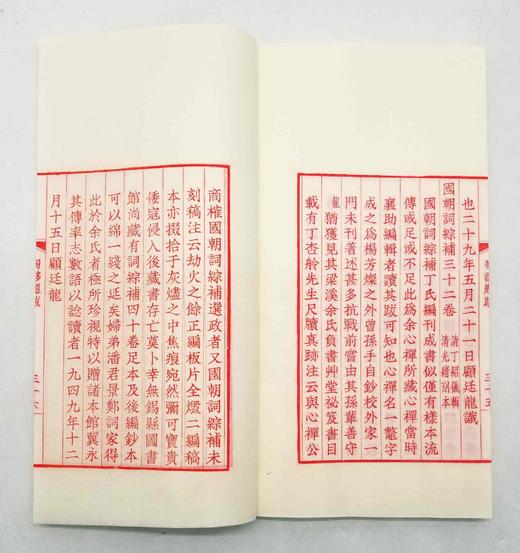 也二十九年五月二十一日顧廷龍識
國朝詞綜補三十二卷 清丁紹儀輯 清光緒刻本
國朝詞綜補丁氏編刊成書似僅有樣本流
傳或足或不足此為余心禪所藏心禪當時
襄助編輯者讀其跋可知也心禪名一鼇字
成之為楊芳燦之外曾孫手自鈔校外家一
門未刊著述甚多抗戰前嘗由其孫輩善守
龍猶獲見其梁溪余氏負書艸堂祕笈書目
載有丁杏舲先生尺牘真跡注云與心禪公
商榷國朝詞綜補選政者又國朝詞綜補未
刻稿注云劫火之餘正編板片全燬二編稿
本亦掇拾于灰燼之中焦痕宛然彌可寶貴
倭寇侵入後藏書存亡莫卜幸無錫縣圖書
館尚藏有詞綜四十卷足本及後編鈔本
可以綿一綫之延矣婦弟潘君景鄭詞家得
此於余氏者極所珍視特以贈諸本館冀永
其傳率志數語以諗讀者一九四九年十二
月十五日顧廷龍